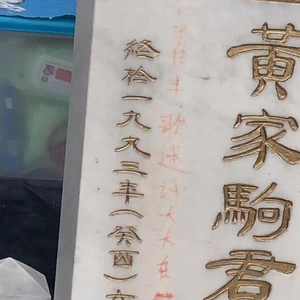 黃家駒君
歌迷許大大在
終於一九九三年(癸酉)六